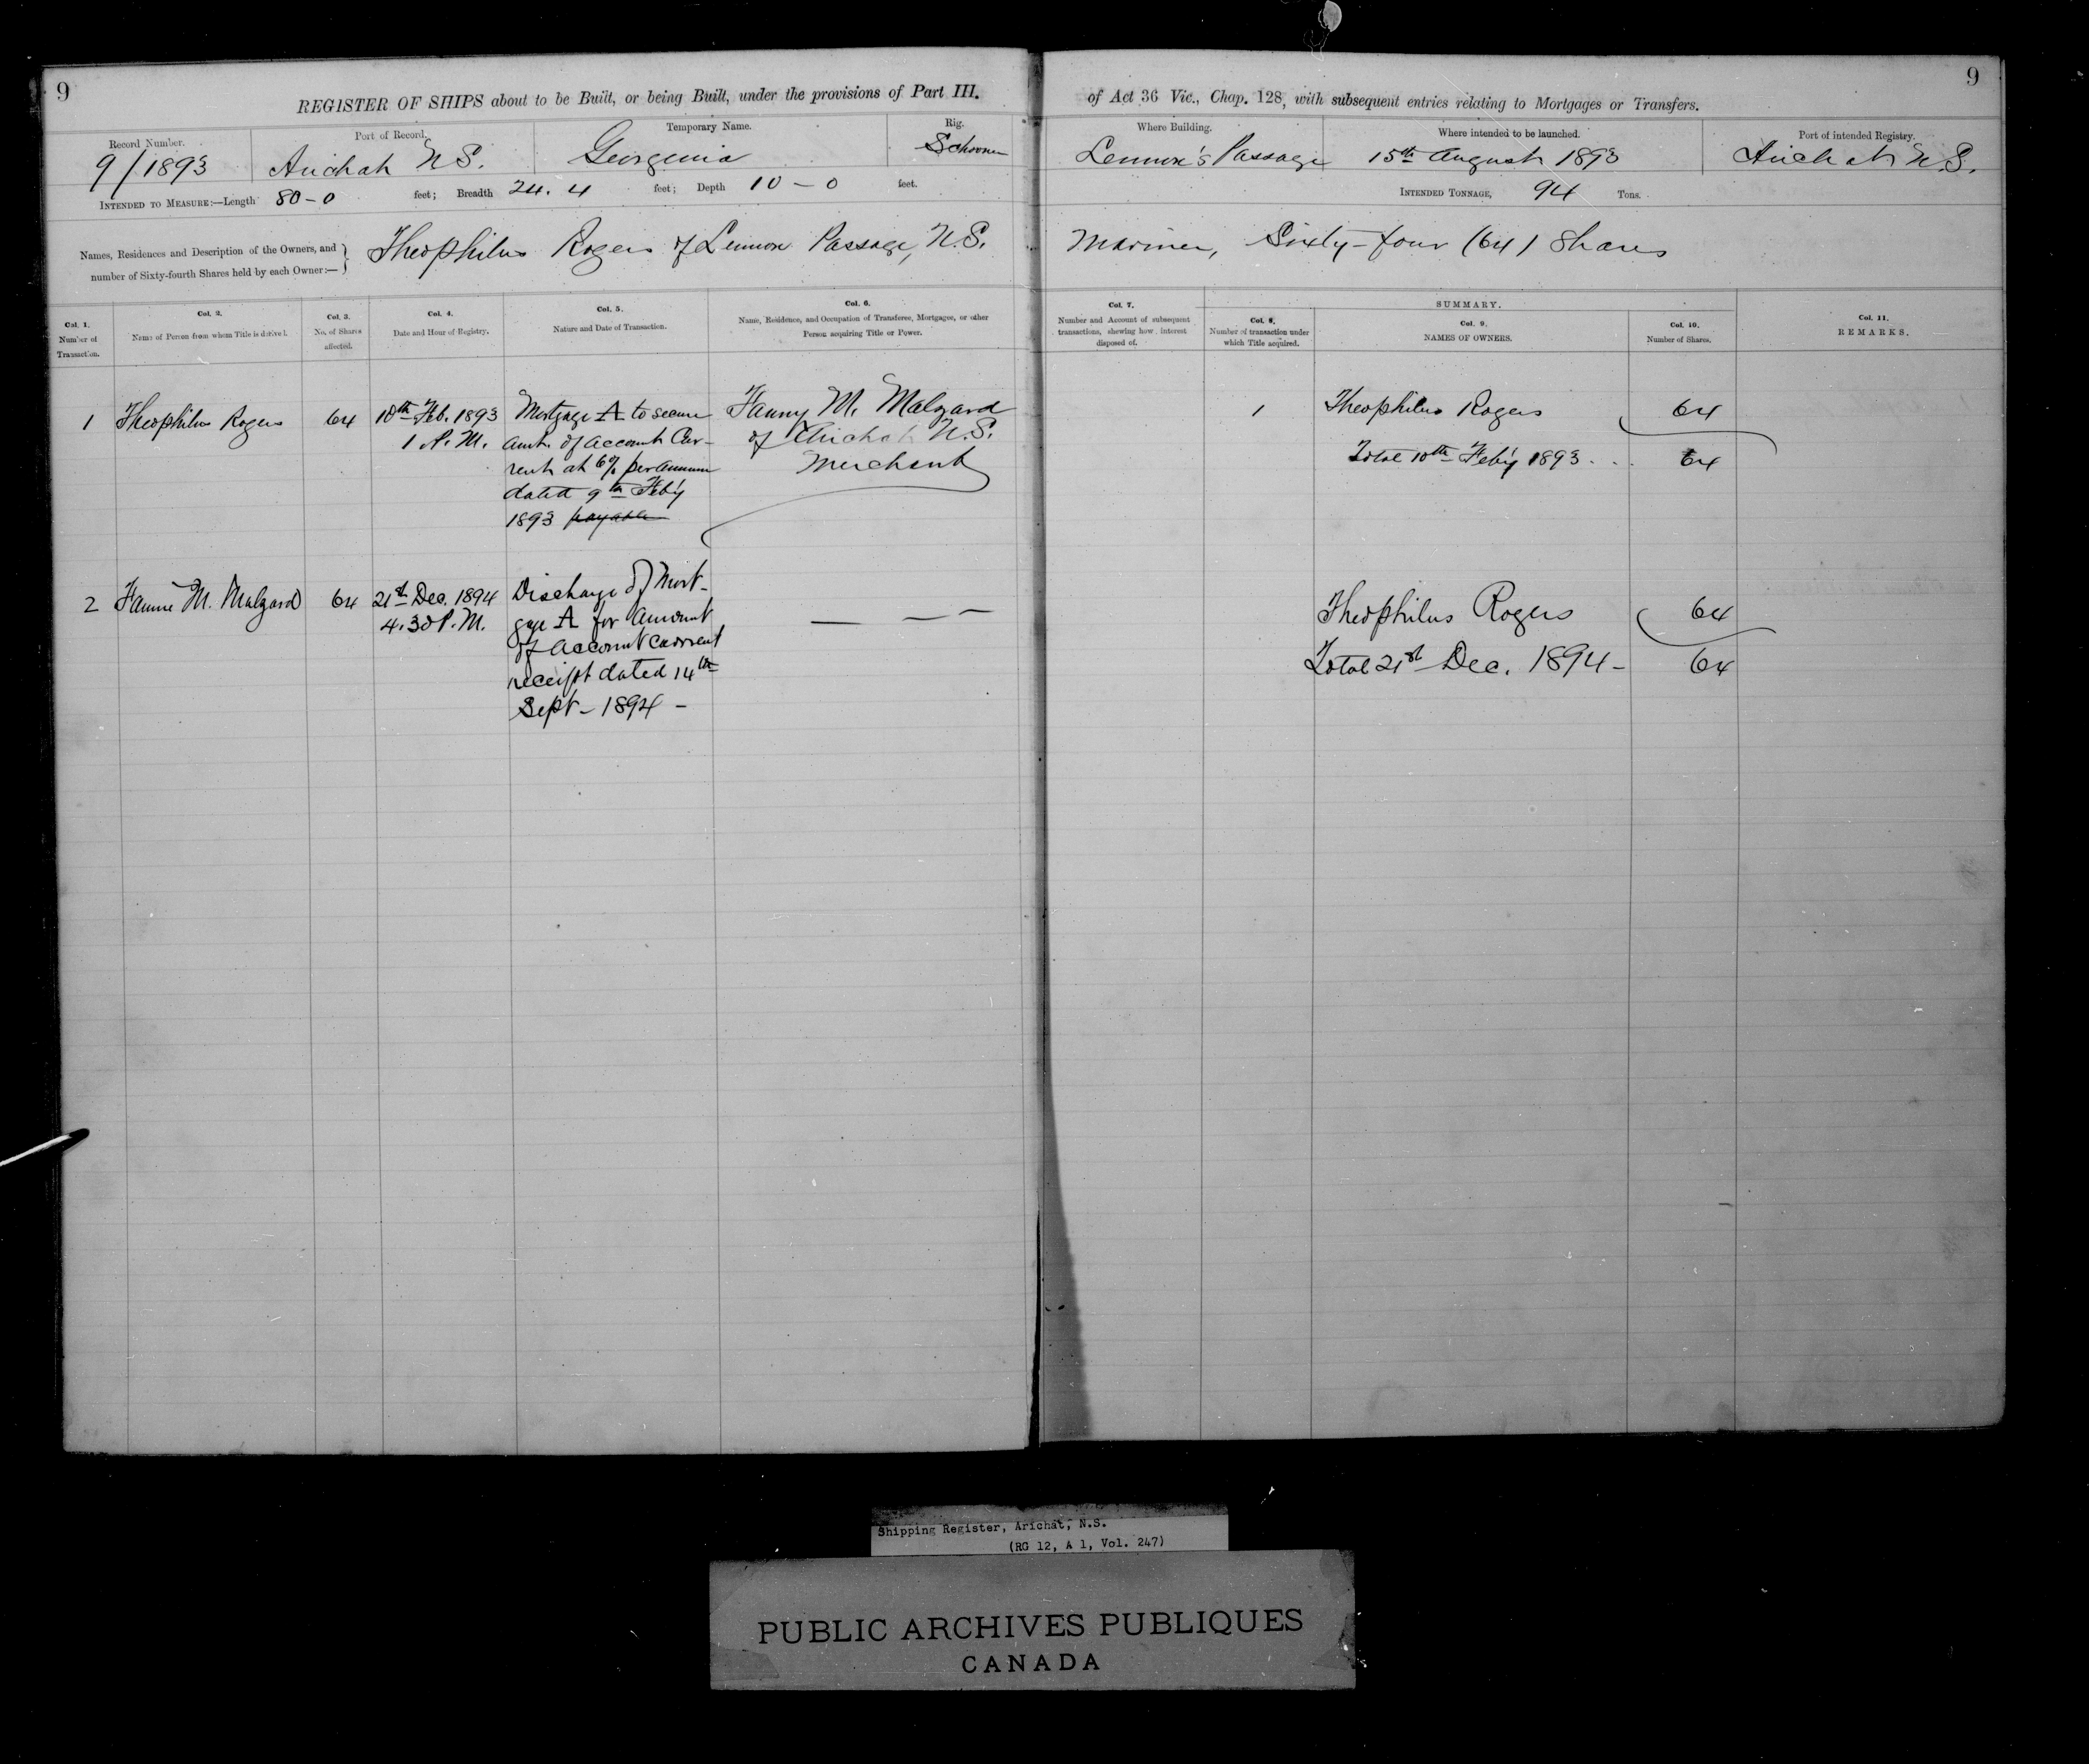 9
REGISTER OF SHIPS about to be Built, or being Built, under the provisions of Part III.
Record Number.
9/1893
Port of Record.
Arichat N.S.
Temporary Name.
Georgenia
Rig.
Schooner
INTENDED TO MEASURE:—Length 80-0 feet; Breadth 24.4 feet; Depth 10-0 feet.
Names, Residences and Description of the Owners, and
number of Sixty-fourth Shares held by each Owner:—
Theophilus Rogers of Lennox Passage, N.S.
Col. 1.
Number of
Transaction.
Col. 2.
Name of Person from whom Title is derived.
Col. 3.
No. of Shares
affected.
Col. 4.
Date and Hour of Registry.
Col. 5.
Nature and Date of Transaction.
Col. 6.
Name, Residence, and Occupation of Transferee, Mortgagee, or other
Person acquiring Title or Power.
1
Theophilus Rogers
64
10th Feb. 1893
1 P.M.
Mortgage A to secure
amt. of account Cur-
rent at 6% per annum
dated 9th Feb'y
1893 payable
Fanny M. Malzard
of Arichat N.S.
Merchant
2
Fannie M. Malzard
64
21st Dec. 1894
4.30 P.M.
Discharge of Mort-
gage A for Amount
of Account Current
receipt dated 14th
Sept - 1894 -
— —
9
of Act 36 Vic., Chap. 128, with subsequent entries relating to Mortgages or Transfers.
Where Building.
Lennox's Passage
Where intended to be launched.
15th August 1893
Port of intended Registry.
Arichat N.S.
INTENDED TONNAGE, 94 Tons.
Mariner, Sixty-four (64) Shares
Col. 7.
Number and Account of subsequent
transactions, shewing how interest
disposed of.
SUMMARY.
Col. 8.
Number of transaction under
which Title acquired.
Col. 9.
NAMES OF OWNERS.
Col. 10.
Number of Shares.
Col. 11.
REMARKS.
1
Theophilus Rogers
64
Total 10th Feb'y 1893 . . .
64
Theophilus Rogers
64
Total 21st Dec. 1894 -
64
Shipping Register, Arichat, N.S.
(RG 12, A 1, Vol. 247)
PUBLIC ARCHIVES PUBLIQUES
CANADA